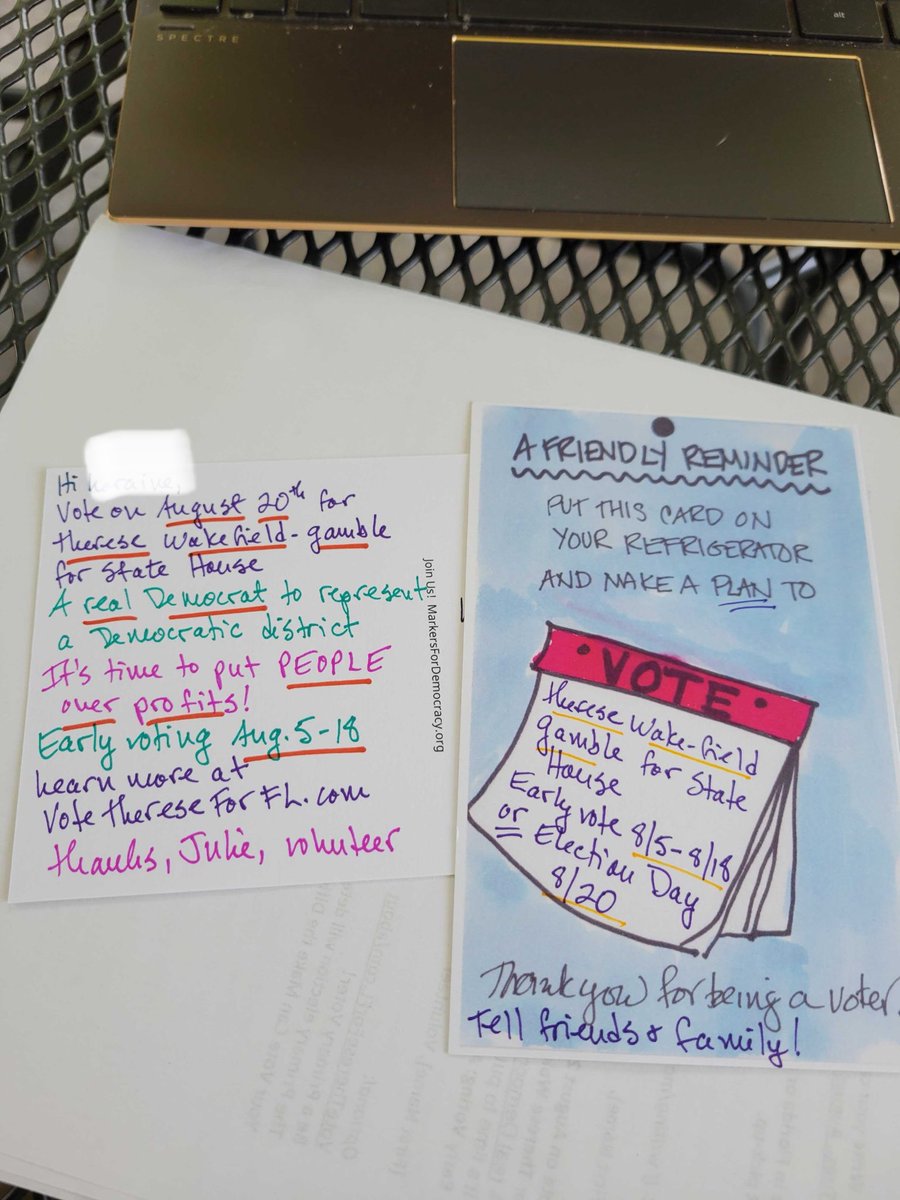 SPECTRE
alt
Hi
Vote on August 20th for
Therese Wakefield-gamble
for State House
A real Democrat to represent
a Democratic district
It's time to put PEOPLE
over profits!
Early voting Aug. 5-18
Learn more at
Vote Therese For FL.com
Thanks, Julie, volunteer
Join Us! MarkersForDemocracy.org
A FRIENDLY REMINDER
PUT THIS CARD ON
YOUR REFRIGERATOR
AND MAKE A PLAN TO
VOTE
Therese Wake-field
gamble for State
House
Early vote 8/5-8/18
or Election Day
8/20
Thank you for being a voter.
Tell friends & family!